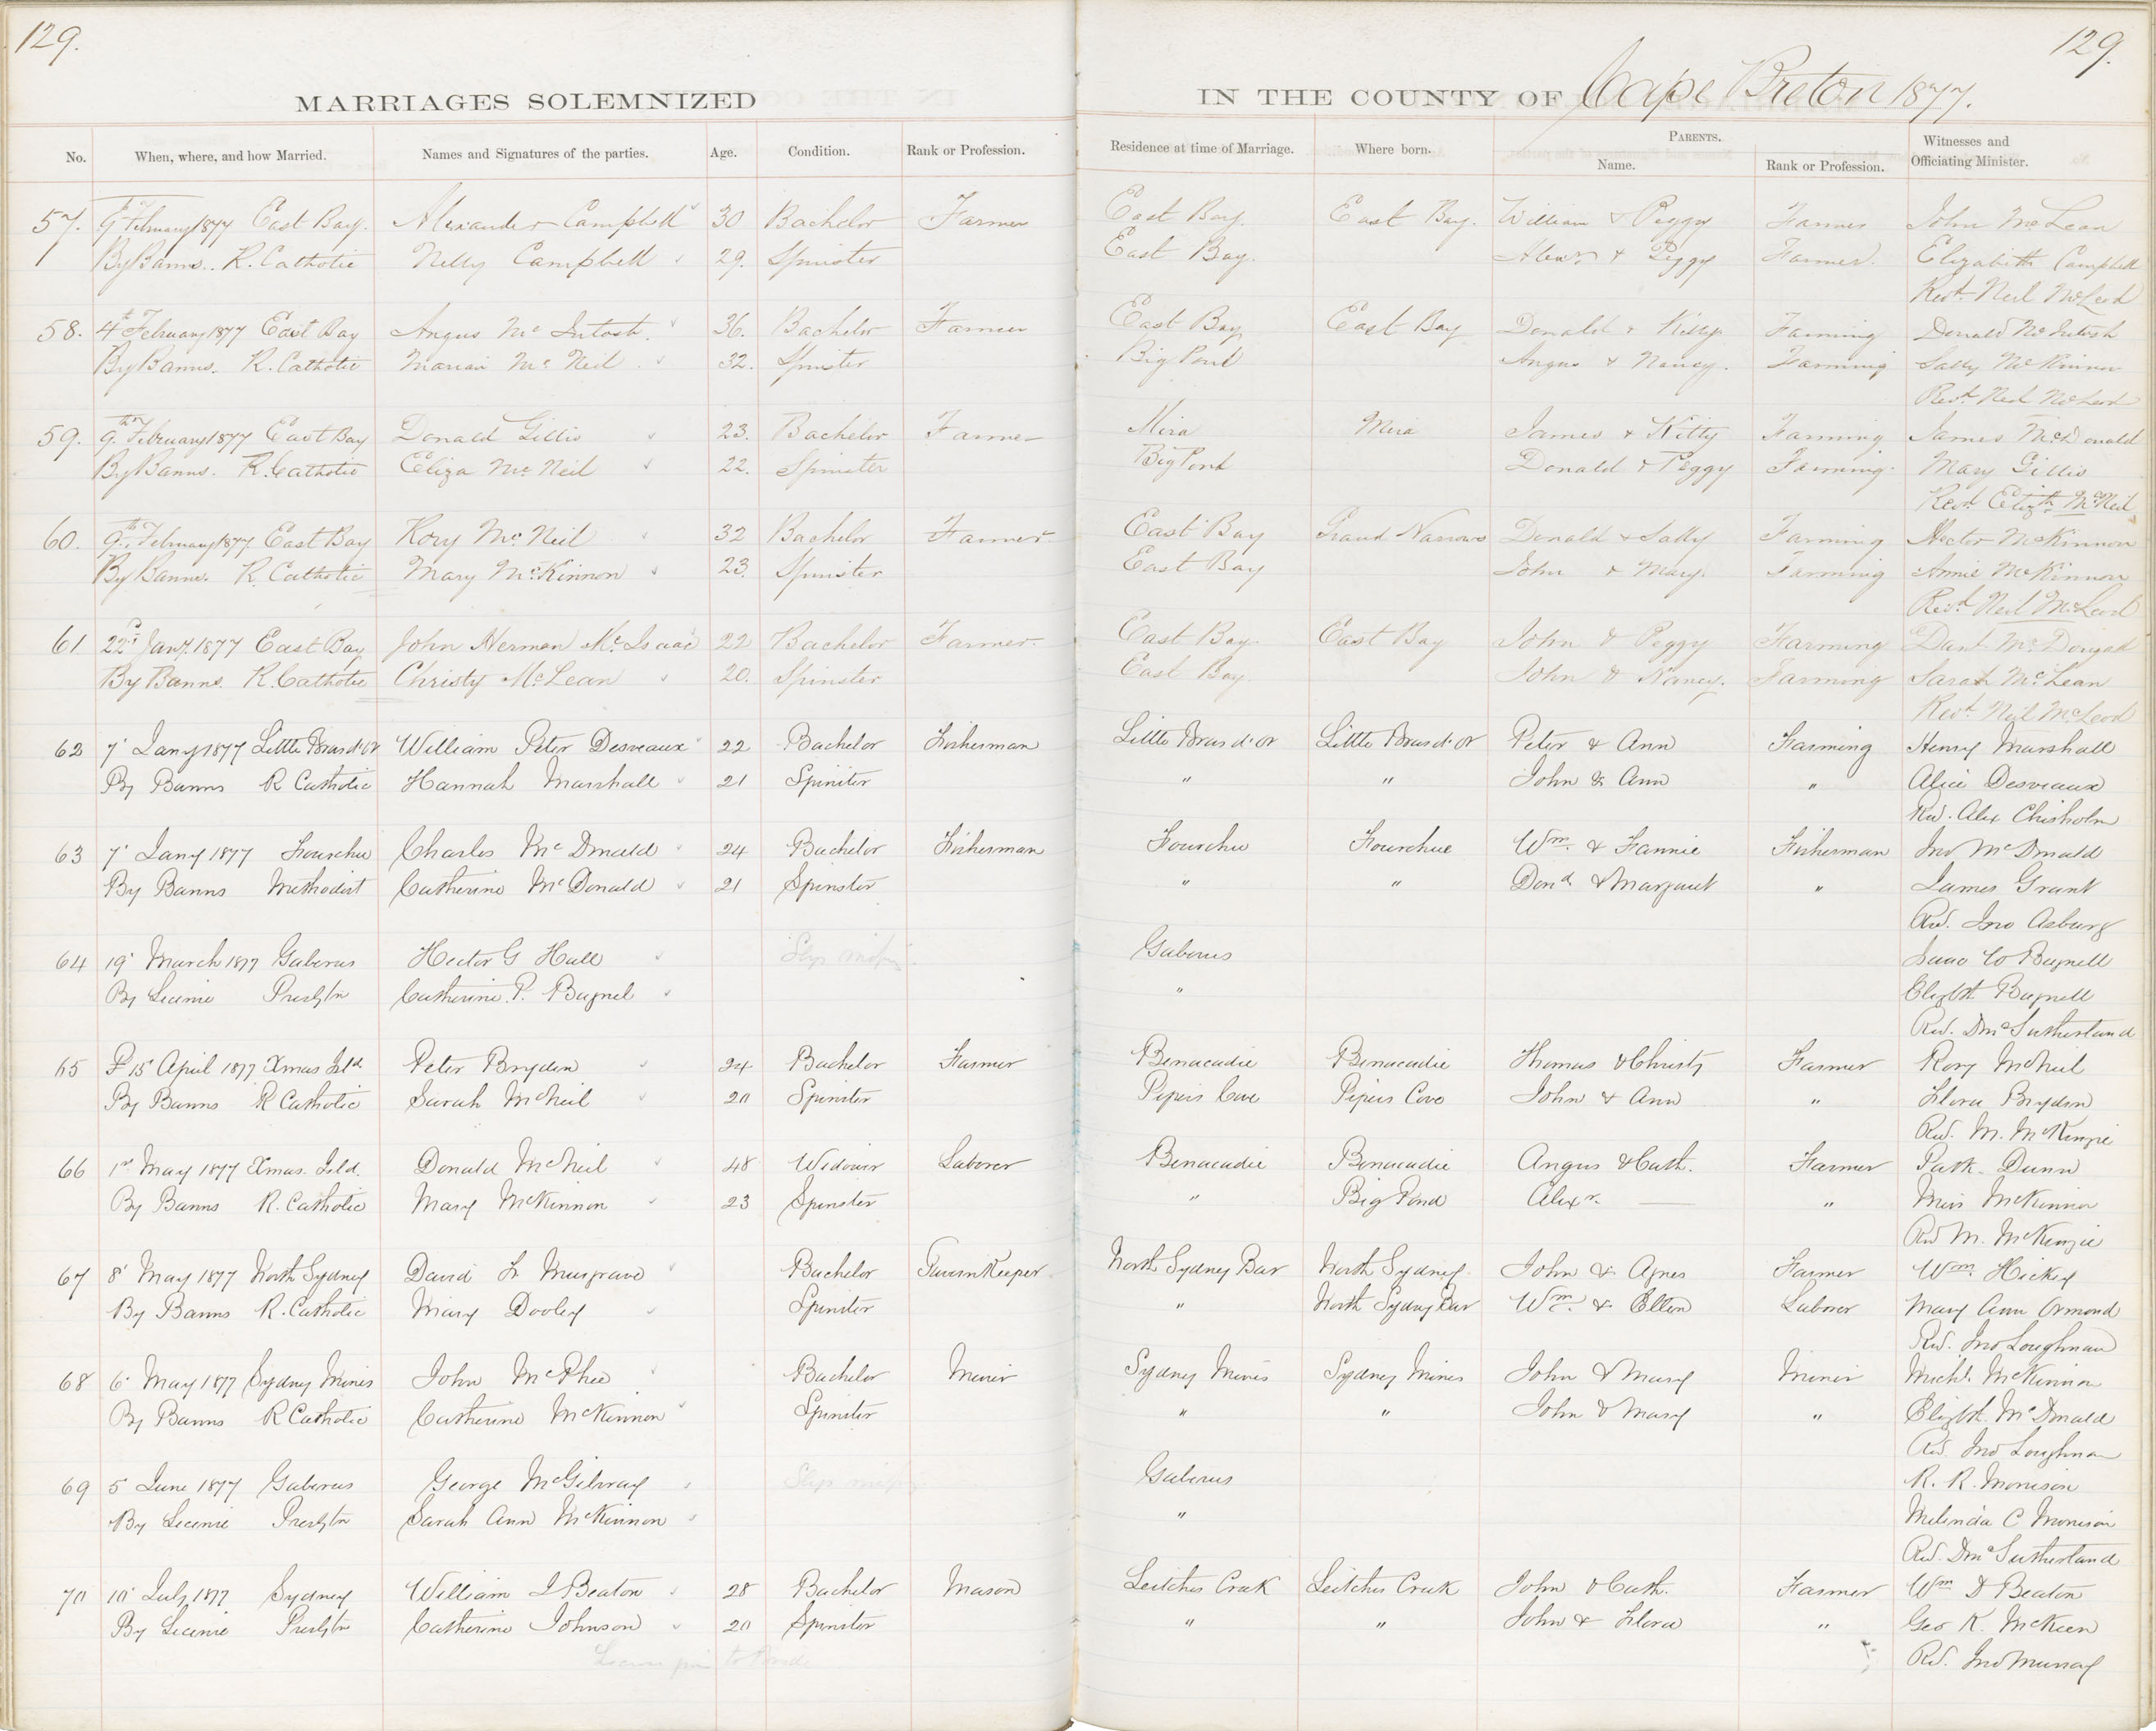 129.
129.
MARRIAGES SOLEMNIZED IN THE COUNTY OF Cape Breton 1877.
No. When, where, and how Married. Names and Signatures of the parties. Age. Condition. Rank or Profession. Residence at time of Marriage. Where born. PARENTS. Name. Rank or Profession. Witnesses and Officiating Minister.
57. 9th February 1877 East Bay. Alexander Campbell 30 Bachelor Farmer East Bay. East Bay. William & Peggy Farmer John McLean
By Banns. R. Catholic Nelly Campbell 29. Spinster East Bay. Alexr. & Peggy Farmer. Elizabeth Campbell
Revd. Neil McLeod
58. 4th February 1877 East Bay Angus McIntosh. 36. Bachelor Farmer East Bay East Bay Donald & Kitty Farming Donald McIntosh
By Banns. R. Catholic Marian McNeil 32. Spinster Big Pond Angus & Nancy. Farming Sally McKinnon
Revd. Neil McLeod
59. 9th February 1877 East Bay Donald Gillis 23. Bachelor Farmer Mira Mira James & Kitty Farming James McDonald
By Banns. R. Catholic Eliza McNeil 22. Spinster Big Pond Donald & Peggy Farming. Mary Gillis
Revd. Elizth. McNeil
60. 9th February 1877 East Bay Rory McNeil 32 Bachelor Farmer East Bay Grand Narrows Donald & Sally Farming Hector McKinnon
By Banns. R. Catholic Mary McKinnon 23. Spinster East Bay John & Mary. Farming Annie McKinnon
Revd. Neil McLeod
61 22d Jany. 1877 East Bay John Norman McIsaac 22 Bachelor Farmer. East Bay East Bay John & Peggy Farming Danl. McDougall
By Banns. R. Catholic Christy McLean 20. Spinster East Bay. John & Nancy. Farming Sarah McLean
Revd. Neil McLeod
62 7' Jany 1877 Little Bras d'Or William Peter Desveaux 22 Bachelor Fisherman Little Bras d'Or Little Bras d'Or Peter & Ann Farming Henry Marshall
By Banns R Catholic Hannah Marshall 21 Spinster " " John & Ann " Alice Desveaux
Rev. Alex Chisholm
63 7' Jany 1877 Fourchu Charles McDonald 24 Bachelor Fisherman Fourchu Fourchue Wm. & Fannie Fisherman Jno McDonald
By Banns Methodist Catherine McDonald 21 Spinster " " Dond & Margaret " James Grant
Rev. Jno Asbury
64 19' March 1877 Gabarus Hector G Hall Slip missing Gabarus Isaac W Bagnell
By License Presbtn Catherine P. Bagnel " Elizbth Bagnell
Rev. D Sutherland
65 15' April 1877 Xmas Isld. Peter Bryden 24 Bachelor Farmer Benacadie Benacadie Thomas & Christy Farmer Rory McNeil
By Banns R Catholic Sarah McNeil 20 Spinster Pipers Cove Pipers Cove John & Ann " Flora Bryden
Rev. M. McKenzie
66 1st May 1877 Xmas. Isld. Donald McNeil 48 Widower Laborer Benacadie Benacadie Angus & Cath. Farmer Patk Dunn
By Banns R. Catholic Mary McKinnon 23 Spinster " Big Pond Alexr. — " Miss McKinnon
Rev M. McKenzie
67 8' May 1877 North Sydney David L Musgrave Bachelor Tavern Keeper North Sydney Bar North Sydney John & Agnes Farmer Wm. Hickey
By Banns R. Catholic Mary Dooley Spinster " North Sydney Bar Wm. & Ellen Laborer Mary Ann Ormond
Rev. Jno Loughnan
68 6' May 1877 Sydney Mines John McPhee Bachelor Miner Sydney Mines Sydney Mines John & Mary Miner Michl. McKinnon
By Banns R Catholic Catherine McKinnon Spinster " " John & Mary " Elizbt. McDonald
Rev Jno Loughnan
69 5 June 1877 Gabarus George McGilvray Slip missing Gabarus R. R. Morrison
By License Presbtn Sarah Ann McKinnon " Melinda C Morrison
Rev. D Sutherland
70 10' July 1877 Sydney William J Beaton 28 Bachelor Mason Leitches Creek Leitches Creek John & Cath. Farmer Wm D Beaton
By License Presbtn Catherine Johnson 20 Spinster " " John & Flora " Geo K. McKeen
Rev. Jno Murray